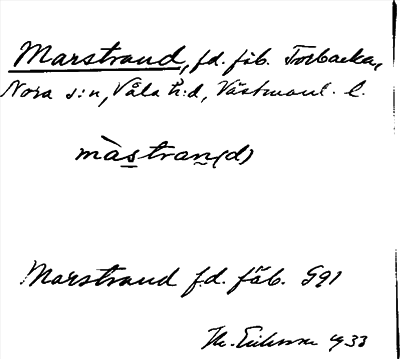 Marstrand, f.d. fäb. Torbacka,
Nora s:n, Våla h:d, Västmanl. l.
màstran(d)
Marstrand f.d. fäb. G91
Hr. Eriksson 1933